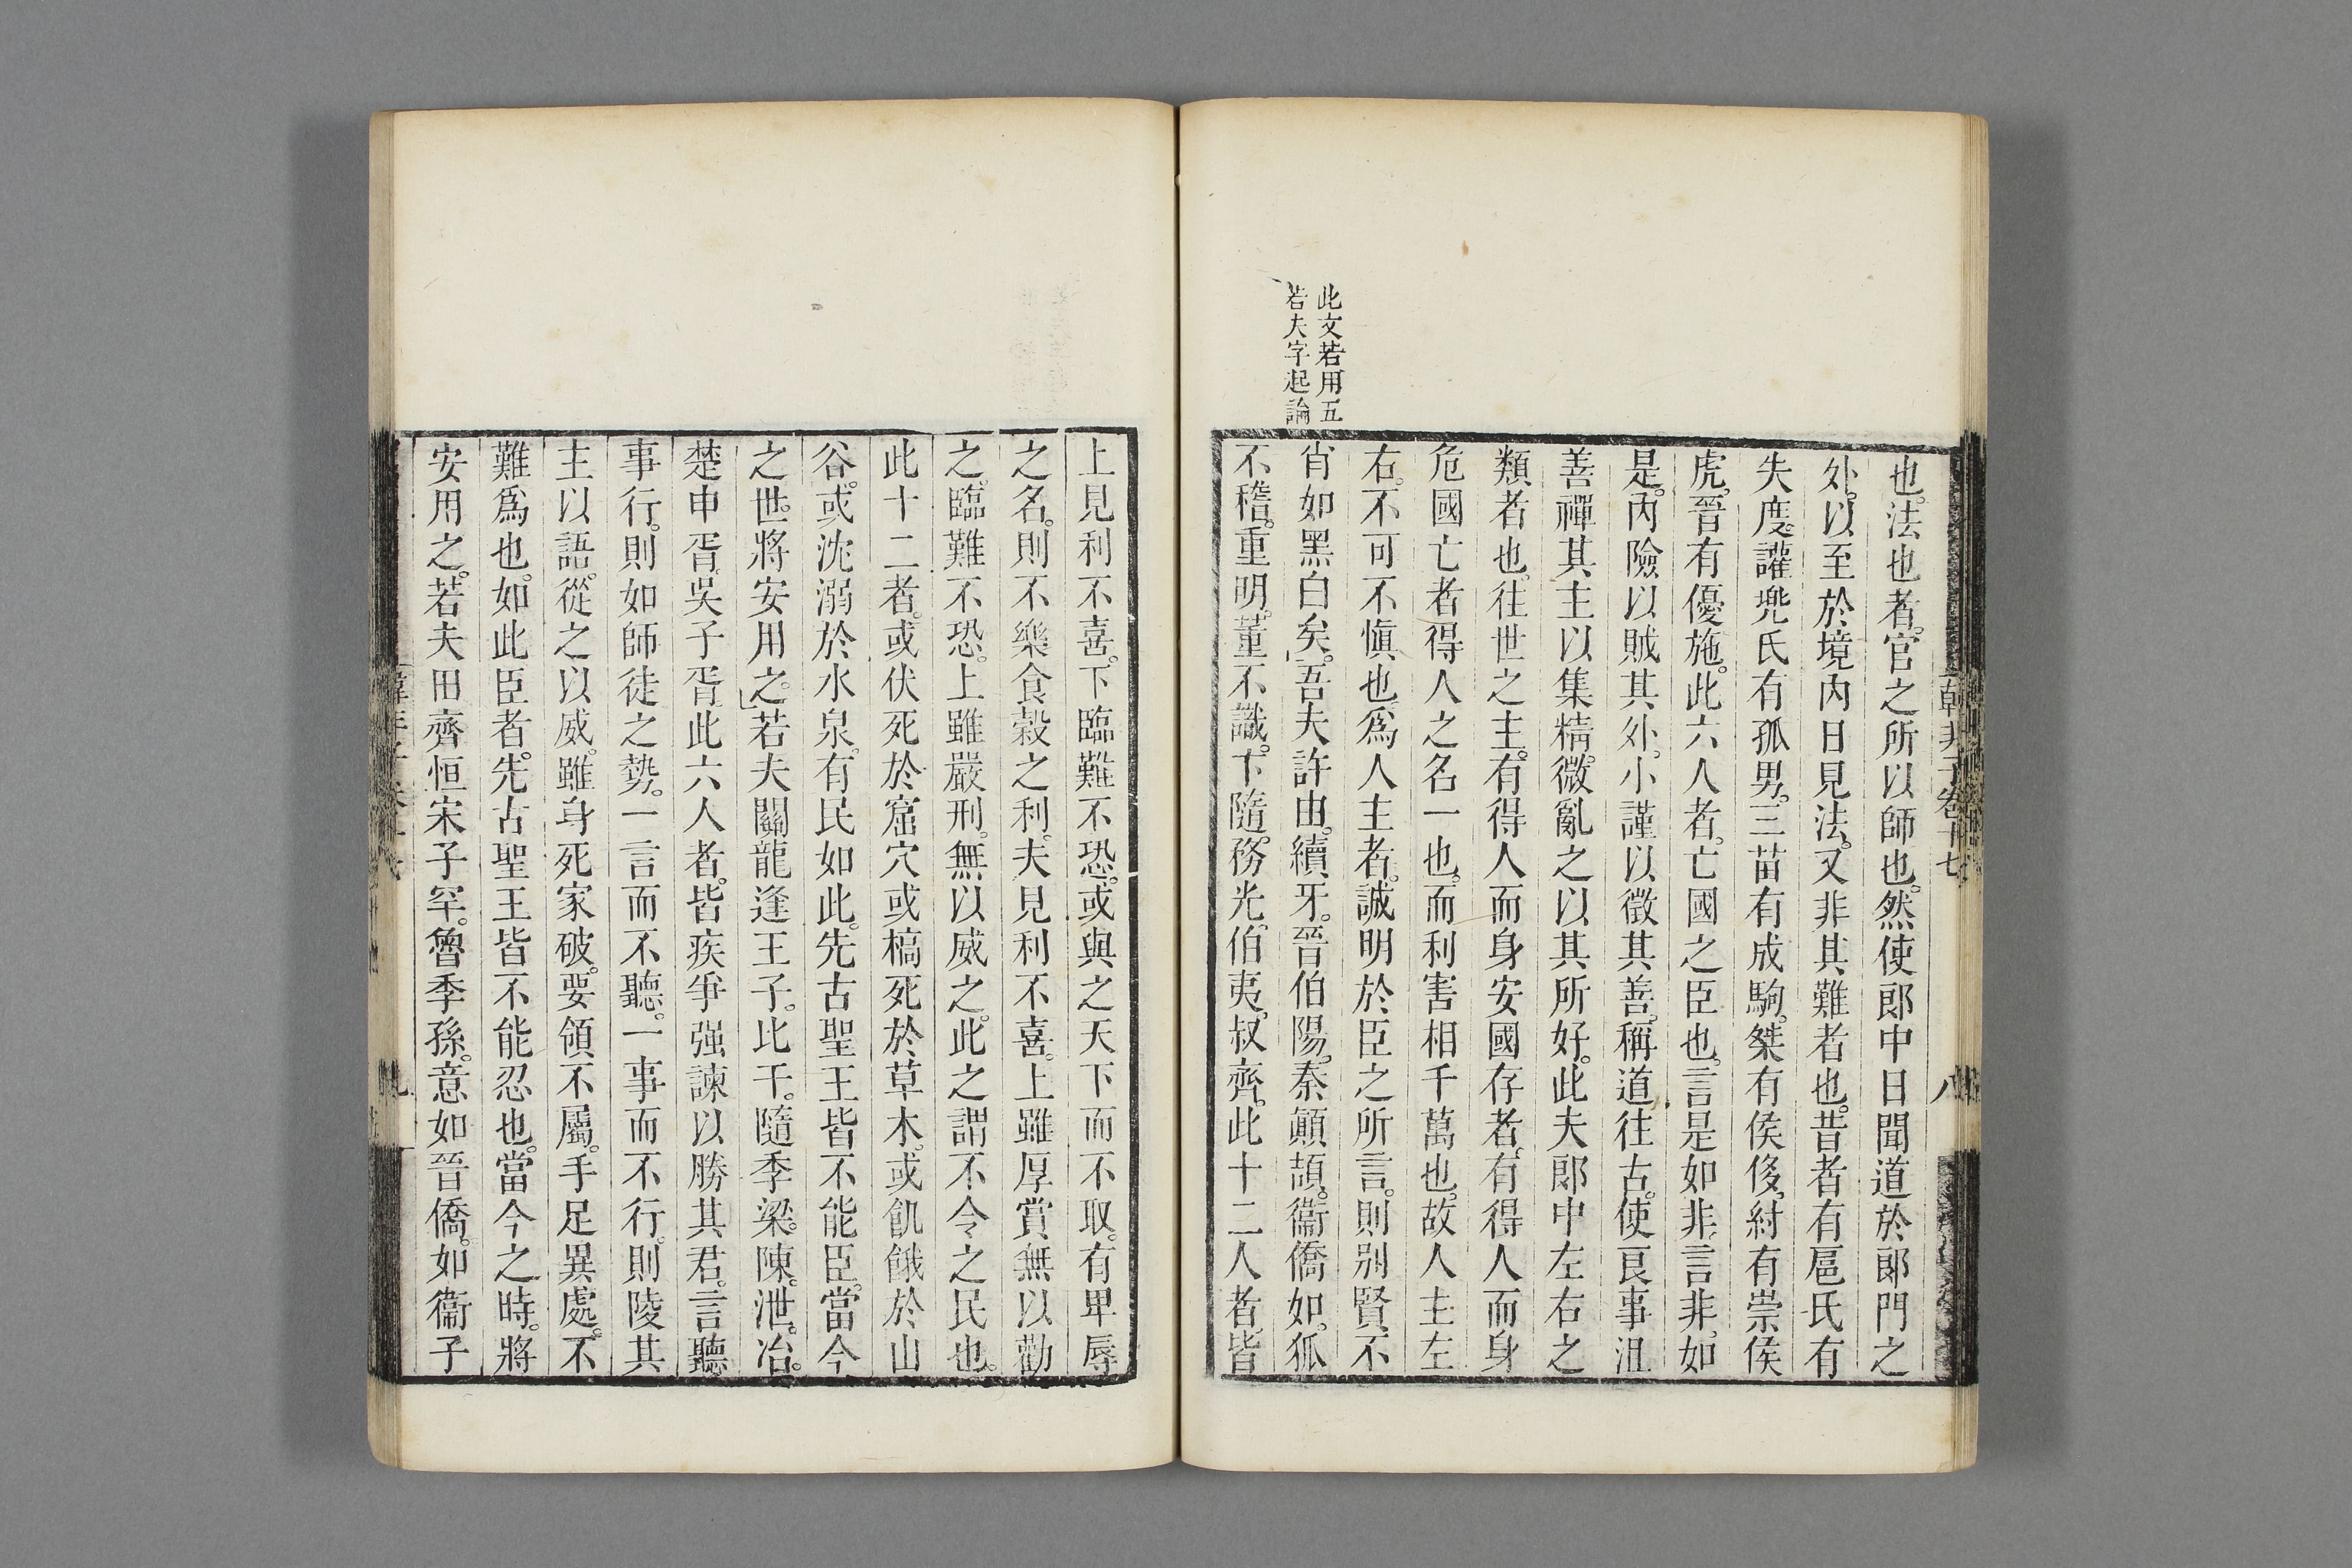 韓非子卷十七
八
也。法也者。官之所以師也。然使郎中日聞道於郎門之
外。以至於境內日見法。又非其難者也。昔者有扈氏有
失度。讙兜氏有孤男。三苗有成駒。桀有侯侈。紂有崇侯
虎。晉有優施。此六人者。亡國之臣也。言是如非。言非如
是。內險以賊其外。小謹以徵其善。稱道往古。使良事沮
善禪其主以集精微。亂之以其所好。此夫郎中左右之
類者也。往世之主。有得人而身安國存者。有得人而身
危國亡者得人之名一也。而利害相千萬也。故人主左
右。不可不愼也。爲人主者。誠明於臣之所言。則別賢不
肖如黑白矣。吾夫許由。續牙。晉伯陽。秦顚頡。衞僑如。狐
不稽。重明。董不識。卞隨。務光。伯夷。叔齊。此十二人者皆
此文若用五
若夫字起論
上見利不喜。下臨難不恐。或與之天下而不取。有卑辱
之名。則不樂食穀之利。夫見利不喜。上雖厚賞無以勸
之。臨難不恐。上雖嚴刑。無以威之。此之謂不令之民也。
此十二者。或伏死於窟穴或槁死於草木。或飢餓於山
谷。或沈溺於水泉。有民如此。先古聖王皆不能臣。當今
之世。將安用之。若夫關龍逢王子。比干。隨季梁。陳。泄。冶。
楚申胥吳子胥此六人者。皆疾爭强諫以勝其君。言聽
事行。則如師徒之勢。一言而不聽。一事而不行。則陵其
主以語。從之以威。雖身死家破。要領不屬。手足異處。不
難爲也。如此臣者。先古聖王皆不能忍也。當今之時。將
安用之。若夫田齊恒宋子罕。魯季孫。意如晉僑。如衞子
九